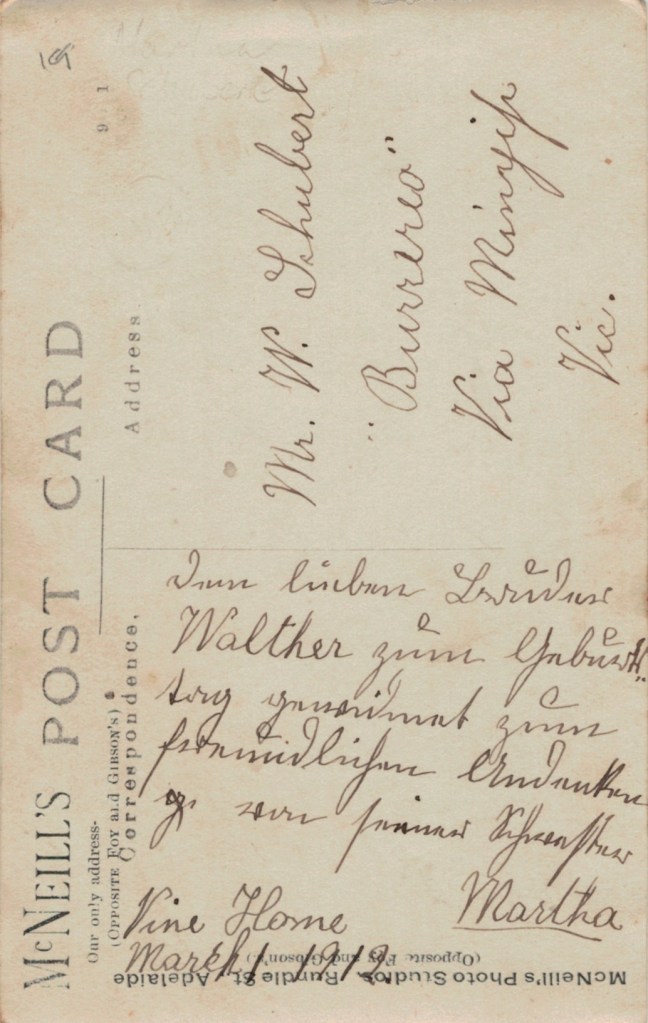 McNEILL'S POST CARD
Our only address-
(OPPOSITE FOY and GIBSON'S)
Correspondence.
Address.
Dem lieben Bruder
Walther zum Geburts"
tag gewidmet zum
freundlichen Andenken
von seiner Schwester
Martha
Vine Home
March 1 1912
Mr. W. Schubert
"Burrereo"
Via Minyip
Vic.
McNeill's Photo Studios, Rundle St. Adelaide
(Opposite Foy and Gibson's.)